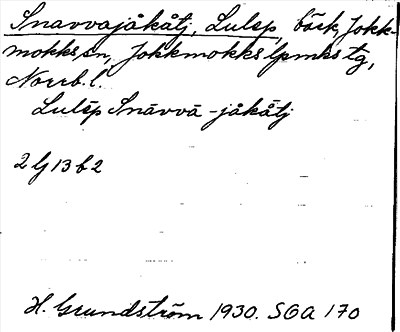 Snavvajåkåtj, Lulsp, bäck, Jokk-
mokks sn, Jokkmokks lpmks tg,
Norrb. l.
Lulsp Snāvvā-jåkåtj
2 G 13 b 2
H. Grundström 1930. SOA 170